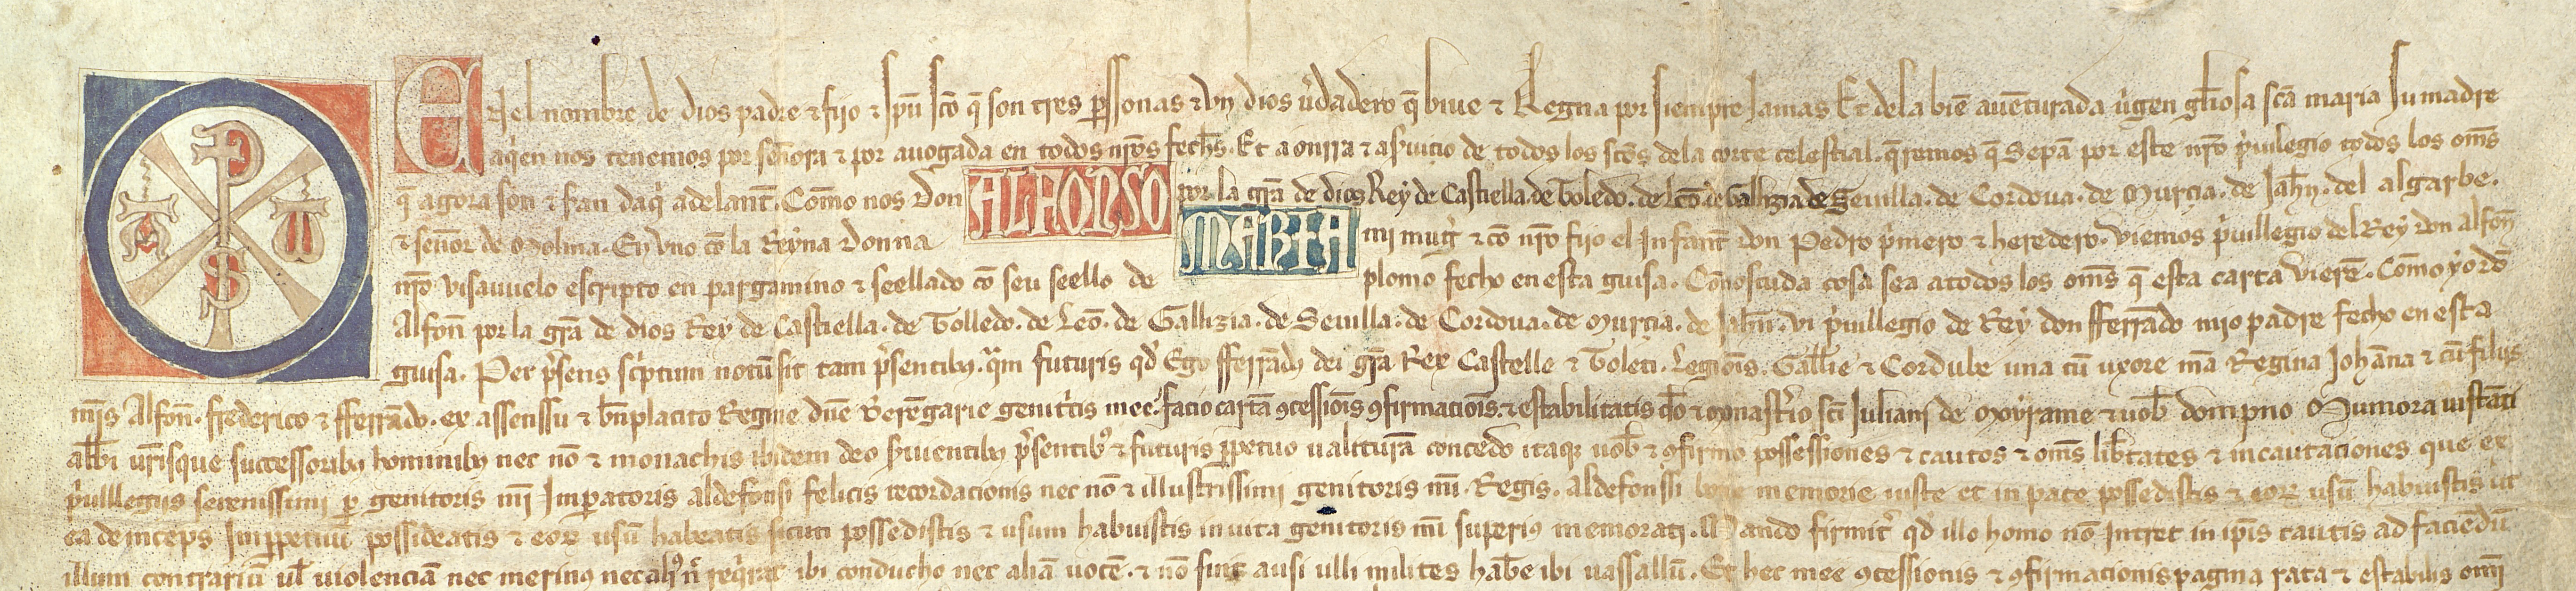 En el nombre de dios padre & fijo & spũ scõ q̃ son tres p̃ssonas & vn dios v̉dadero q̃ biue & Regna por siempre Jamas Et dela biẽ auẽturada v̉gen gl̃iosa scã maria su madre
aq̉en nos tenemos por señora & por auogada en todos nr̃os fechs̃. Et a onrra & as̉uicio de todos los sctõs dela corte celestial. q̃remos q̃ Sepã por este nr̃o p̉uilegio todos los om̃s
q̃ agora son & s̉an daq̉ adelant̃. Cõmo nos don ALFONSO por la grã de dios Rey de Castiella. de Toledo. de leõ. de Gallizia. de Seuilla. de Cordoua. de Murcia. de Jah̃n. del algarbe.
& señor de Molina. En vno cõ la Reyna donna MARIA mi mug̉ & cõ nr̃o fijo el Infant̃ don Pedro p̉mero & heredero. viemos p̉uillegio del Rey don alfoñ
nr̃o visauuelo escripto en pargamino & seellado cõ seu seello de plomo fecho en esta guisa. Cõnosçuda cosa sea atodos los om̃s q̃ esta carta vierẽ. Cõmo yo dõ
Alfoñ por la grã de dios Rey de Castiella. de Tolledo. de Leõ. de Gallizia. de Seuilla. de Cordoua. de Murcia. de Jah̃n. vi p̉uillegio de Rey don fferrãdo mio padre fecho en esta
guisa. Per p̉sens sc̉ptum notũ sit tam p̉sentibꝫ. q̃m futuris qd̉ Ego fferrãdꝰ dei grã Rex Castelle & Toleti. Legiõis. Gall̃ie & Cordube una cũ uxore mã Regina Johãna & cũ filijs
mĩs Alfoñ. frederico & fferrãdo. ex assenssu & bñplacito Regine dñe Berẽgarie genit̉cis mee. facio cartã ꝯcessiõis ꝯfirmaciõis. & estabilitatis d̃o & monast̉io scĩ Juliani de moyrame & uob̃ dompno Munioni instãti
abb̃i ur̃isque successoribꝫ hominibꝫ nec nõ & monachis ibidem deo s̉uientibꝫ p̉sentibꝰ & futuris ꝑpetuo ualiturã concedo itaqꝫ uob̃ & ꝯfirmo possessiones & cautos & om̃s lib̃tates & incautaciones que ex
p̉uillegijs serenissimi ꝑ genitoris mĩ Imꝑatoris aldefonsi felicis recordacionis nec nõ & illustrissimi genitoris mĩ. Regis. Aldefonssi bone memorie iuste et in pace possedistis & eoꝝ usũ habuistis ut
ea deinceps Imꝑpetuũ possideatis & eoꝝ usũ habeatis sicuti possedistis & usum habuistis in uita genitoris mĩ superiꝰ memorati. Mando firmit̉ qd̉ illo homo nõ Intret in ip̃is cautis ad faciẽdũ
illum contrariũ ul̃ uiolenciã nec merinꝰ nec req̉rat ibi conducho nec aliã uocẽ. & nõ sint ausi ulli milites hab̃e ibi uassallũ. Et hec mee ꝯcessionis & ꝯfirmacionis pagina rata & estabilis om̃i